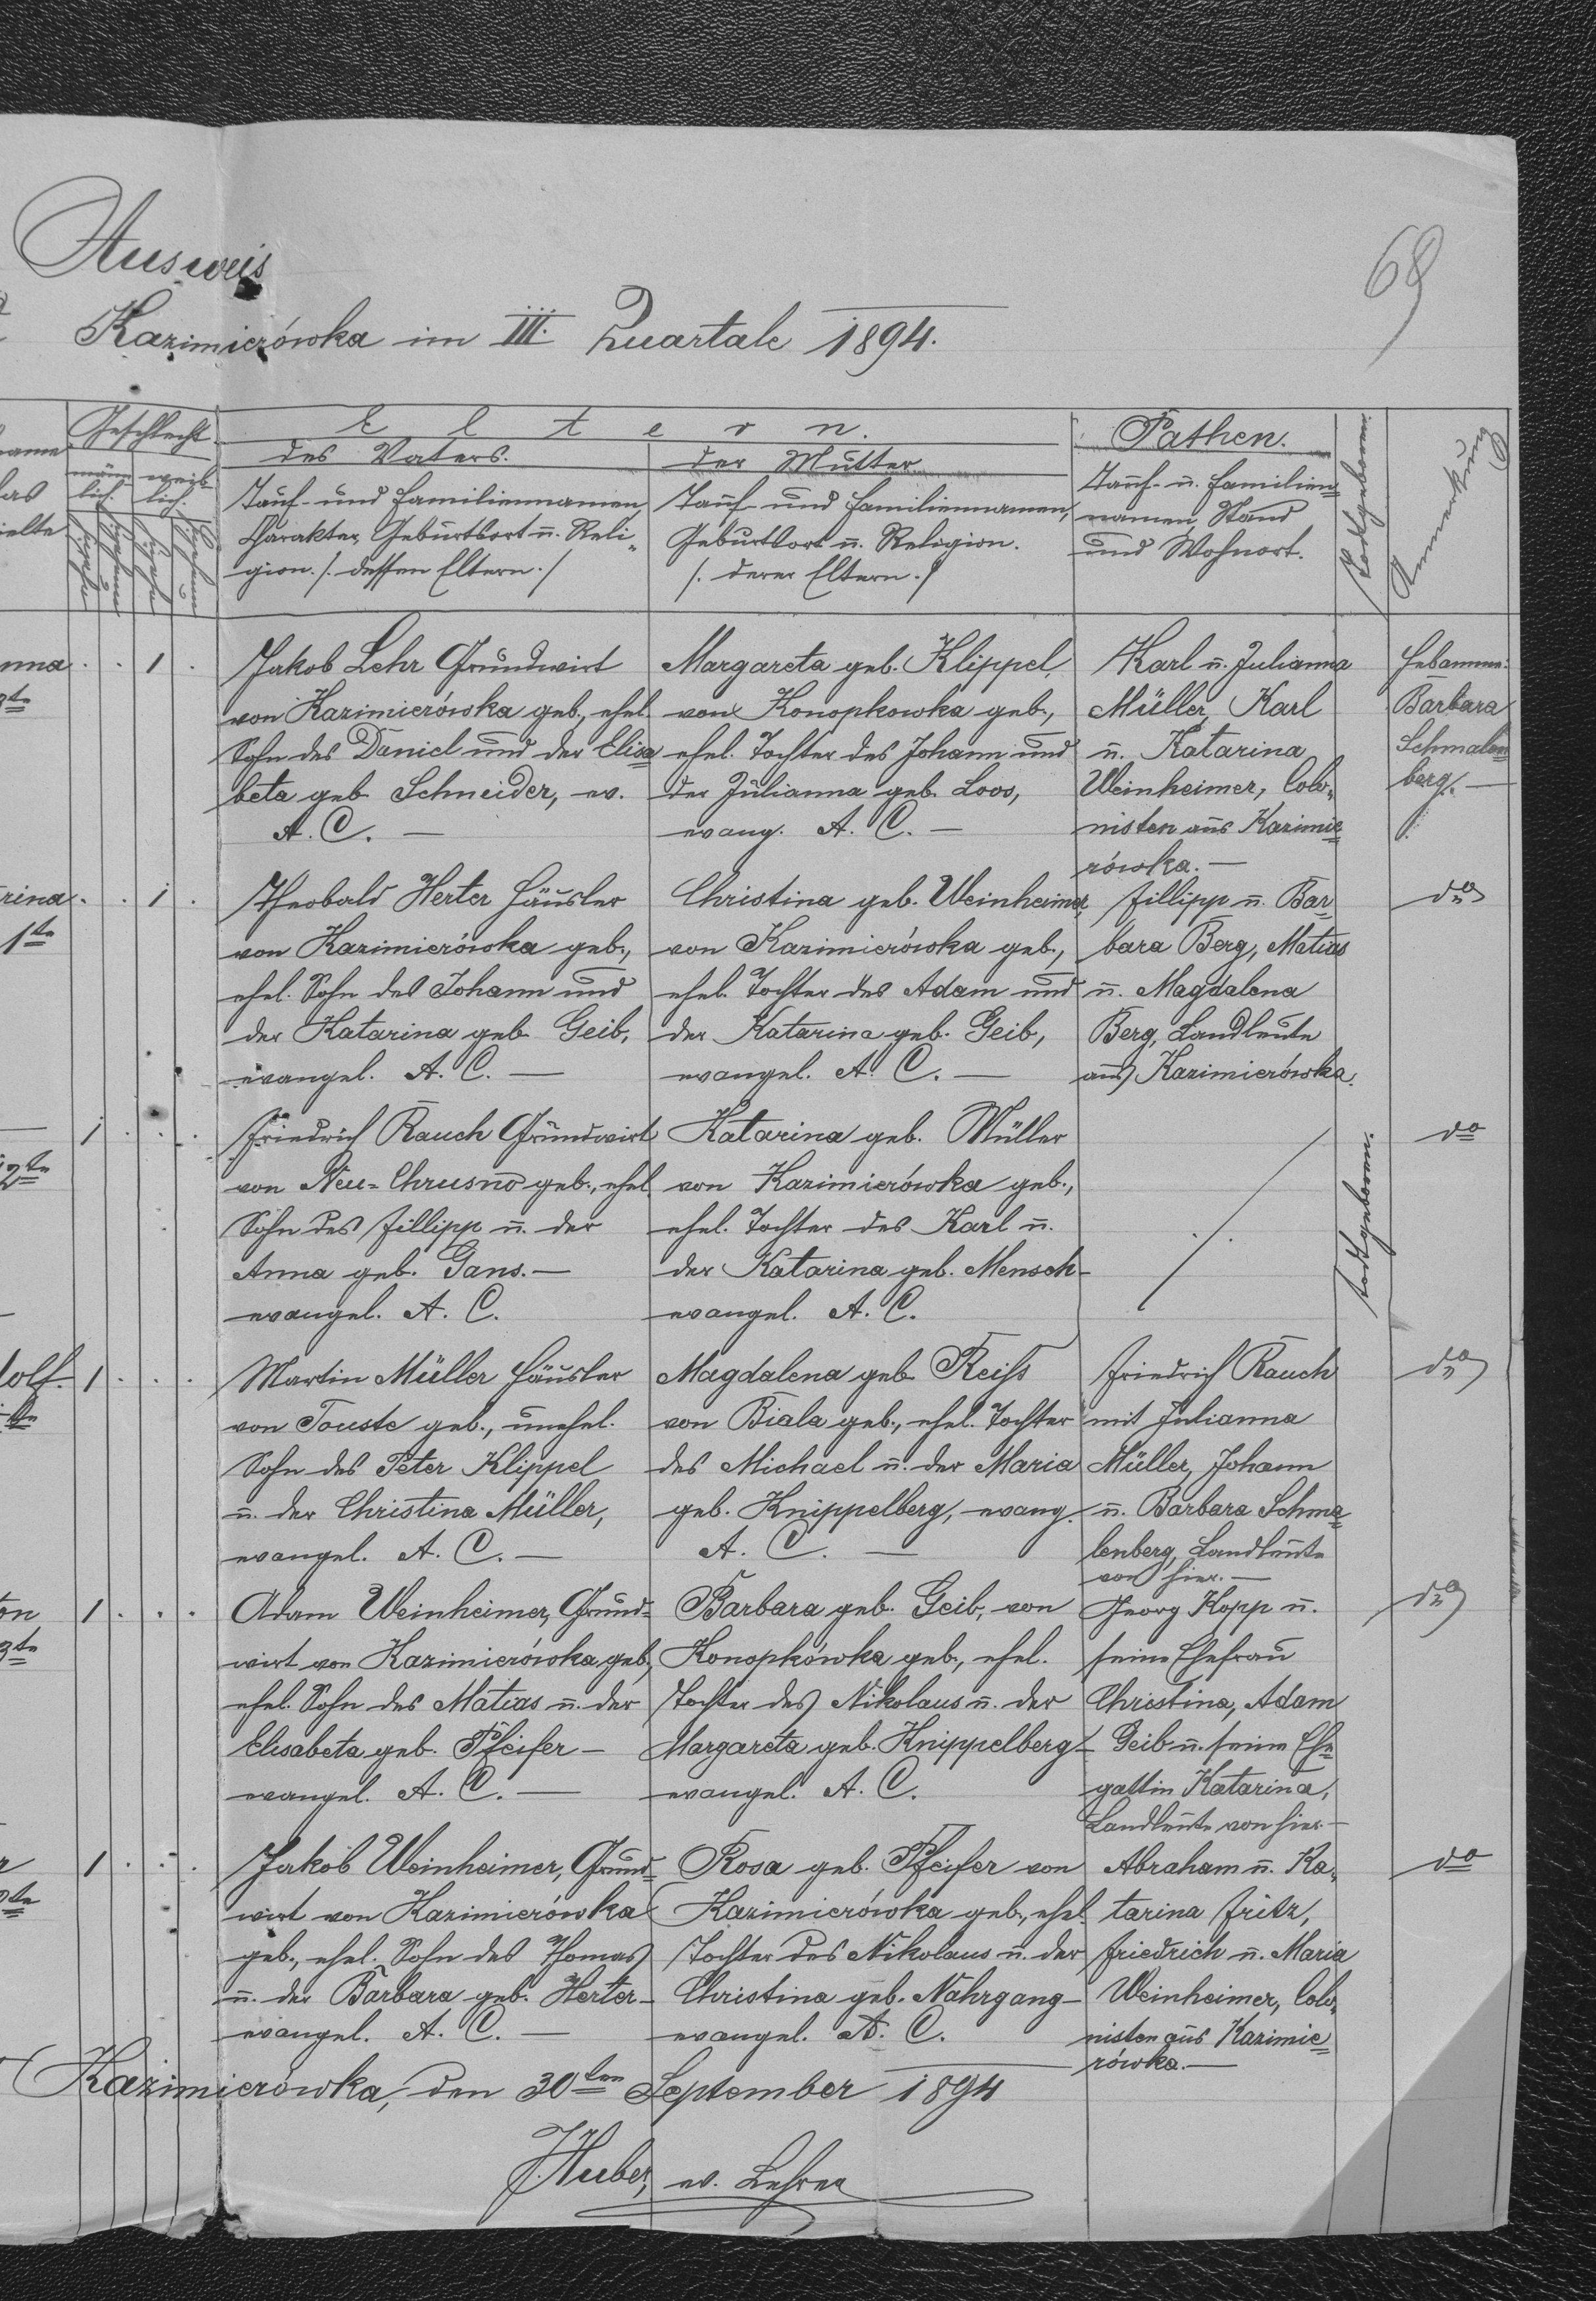 Ausweis
68
Kazimierówka im III. Quartale 1894.
Geschlecht
männ-
lich.
weib-
lich.
Eltern.
des Vaters.
der Mutter
Pathen.
Todtgeboren.
Anmerkung
Tauf- und Familiennamen,
Charakter, Geburtsort u. Reli-
gion. /. dessen Eltern ./
Tauf- und Familiennamen,
Geburtsort u. Religion.
/. derer Eltern ./
Tauf- u. Familien=
namen, Stand
und Wohnort.
nna . . 1 .
Jakob Lehr Grundwirt
von Kazimierówka geb., ehel.
Sohn des Daniel und der Elisa=
beta geb. Schneider, ev.
A. C. —
Margareta geb. Klippel,
von Konopkowka geb.,
ehel. Tochter des Johann und
der Julianna geb. Loos,
evang. A. C. —
Karl u. Julianna
Müller, Karl
u. Katarina
Weinheimer, Colo-
nisten aus Kazimie=
rówka. —
Hebamme:
Barbara
Schmalen=
berg. —
rina . . 1 .
1te
Theobald Herter Häusler
von Kazimierówka geb.,
ehel. Sohn des Johann und
der Katarina geb. Geib,
evangel. A. C. —
Christina geb. Weinheimer,
von Kazimierówka geb.,
ehel. Tochter des Adam und
der Katarina geb. Geib,
evangel. A. C. —
Fillipp u. Bar=
bara Berg, Matias
u. Magdalena
Berg, Landleute
aus Kazimierówka.
do
— 1 . . .
2te
Friedrich Rauch Grundwirt
von Neu-Chrusno geb., ehel.
Sohn des Fillipp u. der
Anna geb. Gans. —
evangel. A. C.
Katarina geb. Müller
von Kazimierówka geb.,
ehel. Tochter des Karl u.
der Katarina geb. Mensch —
evangel. A. C.
todtgeboren.
do
dolf. 1 . . .
Martin Müller Häusler
von Touste geb., unehel.
Sohn des Peter Klippel
u. der Christina Müller,
evangel. A. C. —
Magdalena geb. Reiss
von Biala geb., ehel. Tochter
des Michael u. der Maria
geb. Knippelberg, evang.
A. C. —
Friedrich Rauch
mit Julianna
Müller, Johann
u. Barbara Schma=
lenberg, Landleute
von hier. —
do
ton 1 . . .
3te
Adam Weinheimer, Grund=
wirt von Kazimierówka geb.,
ehel. Sohn des Matias u. der
Elisabeta geb. Pfeifer —
evangel. A. C. —
Barbara geb. Geib, von
Konopkówka geb., ehel.
Tochter des Nikolaus u. der
Margareta geb. Knippelberg —
evangel. A. C.
Georg Kopp u.
seine Ehefrau
Christina, Adam
Geib u. seine Ehe=
gattin Katarina,
Landleute von hier. —
do
1 . . .
Jakob Weinheimer, Grund=
wirt von Kazimierówka
geb., ehel. Sohn des Thomas
u. der Barbara geb. Herter —
evangel. A. C. —
Rosa geb. Pfeifer von
Kazimierówka geb., ehel.
Tochter des Nikolaus u. der
Christina geb. Nahrgang —
evangel. A. C.
Abraham u. Ka-
tarina Fritz,
Friedrich u. Maria
Weinheimer, Colo-
nisten aus Kazimie=
rówka. —
do
Kazimierówka, den 30ten September 1894
J. Huber, ev. Lehrer